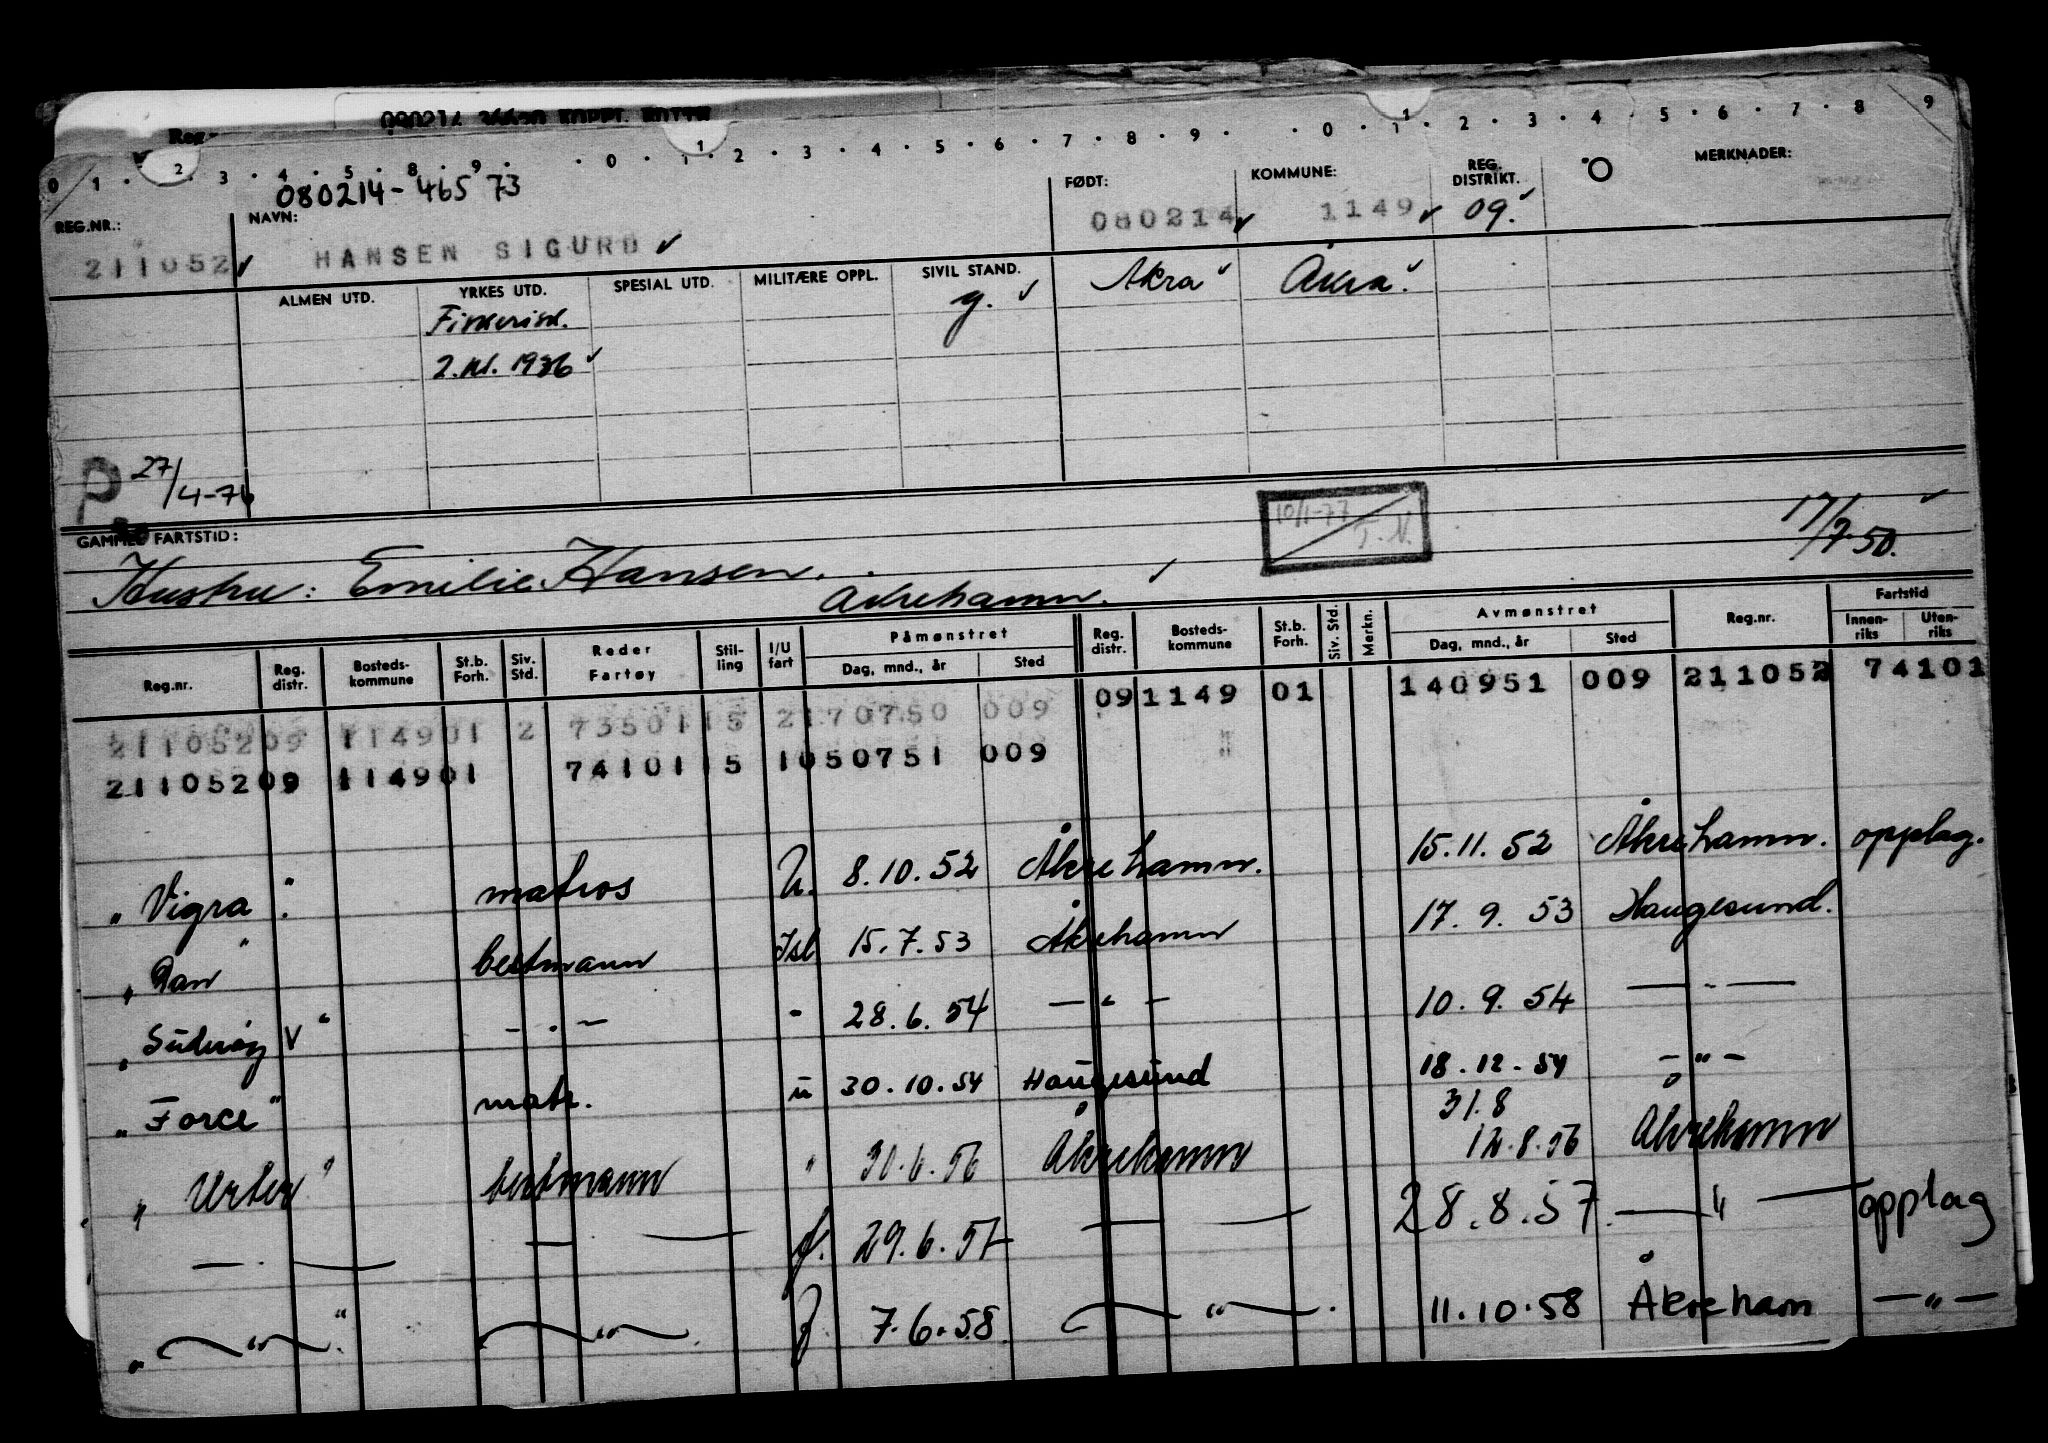 Reg.
0 1 2 3 4 5 8 9 0 1 2 3 4 5 6 7 8 9 0 1 2 3 4 5 6 7 8 9
080214-46573
REG.NR.: NAVN: FØDT: KOMMUNE: REG. DISTRIKT. MERKNADER:
211052 HANSEN SIGURD 080214 1149 09.
ALMEN UTD. YRKES UTD. SPESIAL UTD. MILITÆRE OPPL. SIVIL STAND. Åkra Åkra.
Fiskerisk. g.
2.kl. 1936
P 27/4-76
10/1-77 T.N.
GAMMEL FARTSTID: 17/7.50.
Hustru: Emilie Hansen.
Åkrehamn.
Reg.nr. Reg. distr. Bosteds- kommune St.b. Forh. Siv. Std. Reder Fartøy Stil- ling I/U fart Påmønstret Dag, mnd., år Sted Reg. distr. Bosteds- kommune St.b. Forh. Siv. Std. Merkn. Avmønstret Dag, mnd., år Sted Reg.nr. Fartstid Innen- riks Uten- riks
21105209 114901 2 7350115 2170750 009 09 1149 01 140951 009 211052 74101
21105209 114901 7410115 1050751 009
"Vigra" matros U. 8.10.52 Åkrehamn. 15.11.52 Åkrehamn. opplag.
"Dan" bestmann Isl 15.7.53 Åkrehamn 17.9.53 Haugesund.
"Sulvåg V" - " - - 28.6.54 - " - 10.9.54 - " -
"Force" matr. u 30.10.54 Haugesund 18.12.54 - " -
31.8
"Urter" bestmann " 30.6.56 Åkrehamn 12.8.56 Åkrehamn
- " - - " - f. 29.6.57 - " - 28.8.57. - " - opplag
" - " - " - " - f. 7.6.58. - " - 11.10.58 Åkreham - " -